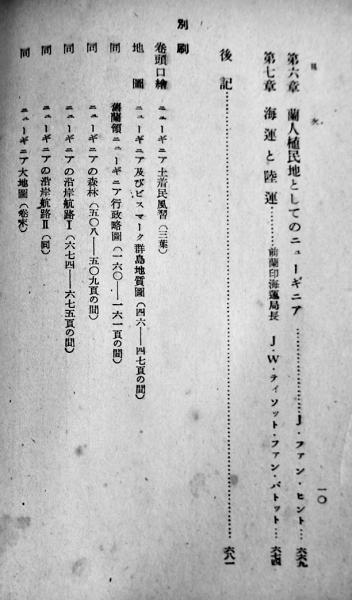 目次
一〇
第六章 蘭人植民地としてのニューギニア…………………J・ファン・ヒント…六六九
第七章 海運と陸運………前蘭印海運局長 J・W・ティソット・ファン・パトット…六七四
後記……………………………………六八一
別刷
卷頭口繪 ニューギニア土着民風習(三葉)
地圖 ニューギニア及びビスマーク群島地質圖(四六――四七頁の間)
同 舊蘭領ニューギニア行政略圖(一六〇――一六一頁の間)
同 ニューギニアの森林(五〇八――五〇九頁の間)
同 ニューギニアの沿岸航路Ⅰ(六七四――六七五頁の間)
同 ニューギニアの沿岸航路Ⅱ(同)
同 ニューギニア大地圖(卷末)